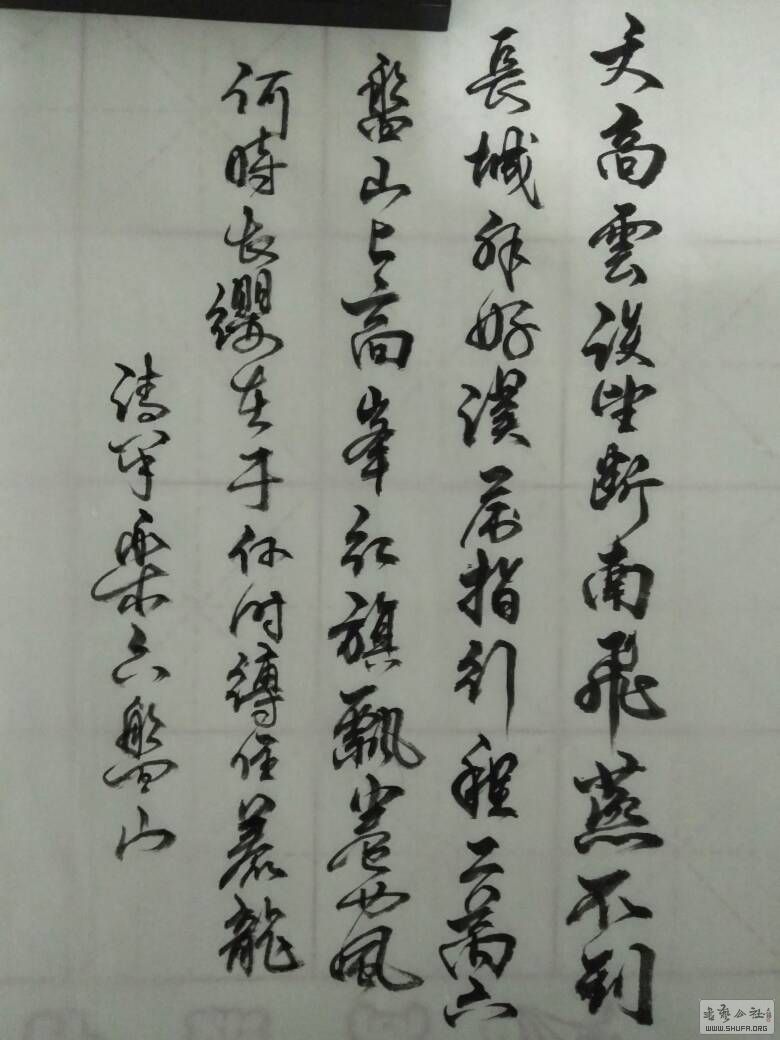 天高雲淡望断南飛燕不到
長城非好漢屈指行程二萬六
盤山上高峯红旗飄卷西風
何時长纓在手何时縛住蒼龍
清平樂六盤山
書藝公社
WWW.SHUFA.ORG